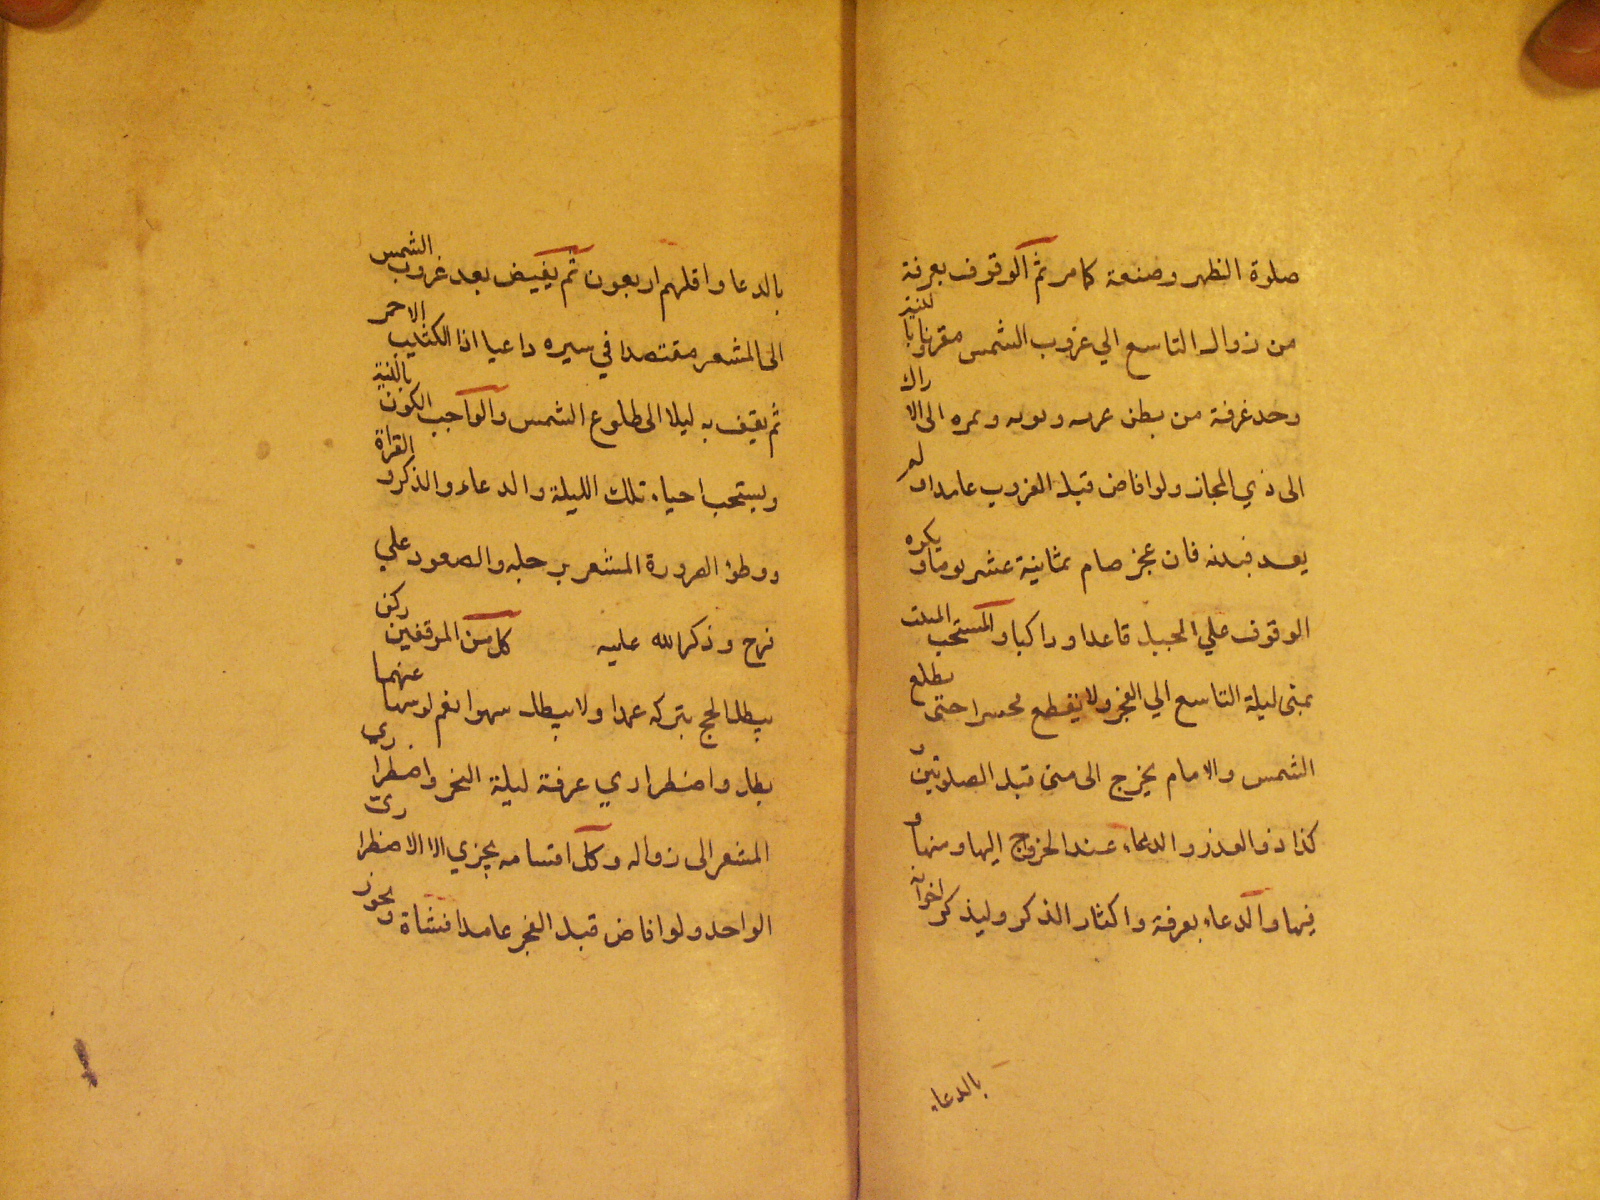 صلوة الظهر وصنعة كامر ثم الوقوف بعرفة
من زوال التاسع الي غروب الشمس مقرونا بالنية
وحد عرفة من بطن عرىه وىوىه وىمره الى الاراك
الى ذي المجاز ولو افاض قبل الغروب عامدا ولم
يعد فبدنه فان عجز صام ثمانية عشر يوما ويكره
الوقوف علي الجبل قاعدا وراكبا والمستحب المبيت
بمنى ليلة التاسع الي الفجر ولا يقطع محسرا حتى تطلع
الشمس والامام يخرج الى منى قبل الصلوتين و
كذا ذو العذر والدعاء عند الخروج اليها ومنها و
فيها والدعاء بعرفة واكثار الذكر وليذكر اخوانه
بالدعاء
بالدعا واقلهم اربعون ثم يفيض بعد غروب الشمس
الى المشعر مقتصدا في سيره داعيا اذا الكثيب الاحمر
ثم يقف به ليلا الى طلوع الشمس والواجب الكون بالنية
ويستحب احياء تلك الليلة والدعاء والذكر والقراة
ووطؤ الصرورة المشعر برجله والصعود علي
قزح وذكر الله عليه كل من الموقفين ركن
يبطل الحج بتركه عمدا ولا يبطل سهوا نعم لو سها عنهما
بطل واضطراري عرفة ليلة النحر واضطراري
المشعر الى زواله وكل اقسامه يجزي الا الاضطراري
الواحد ولو افاض قبل الفجر عامدا فشاة ويجوز